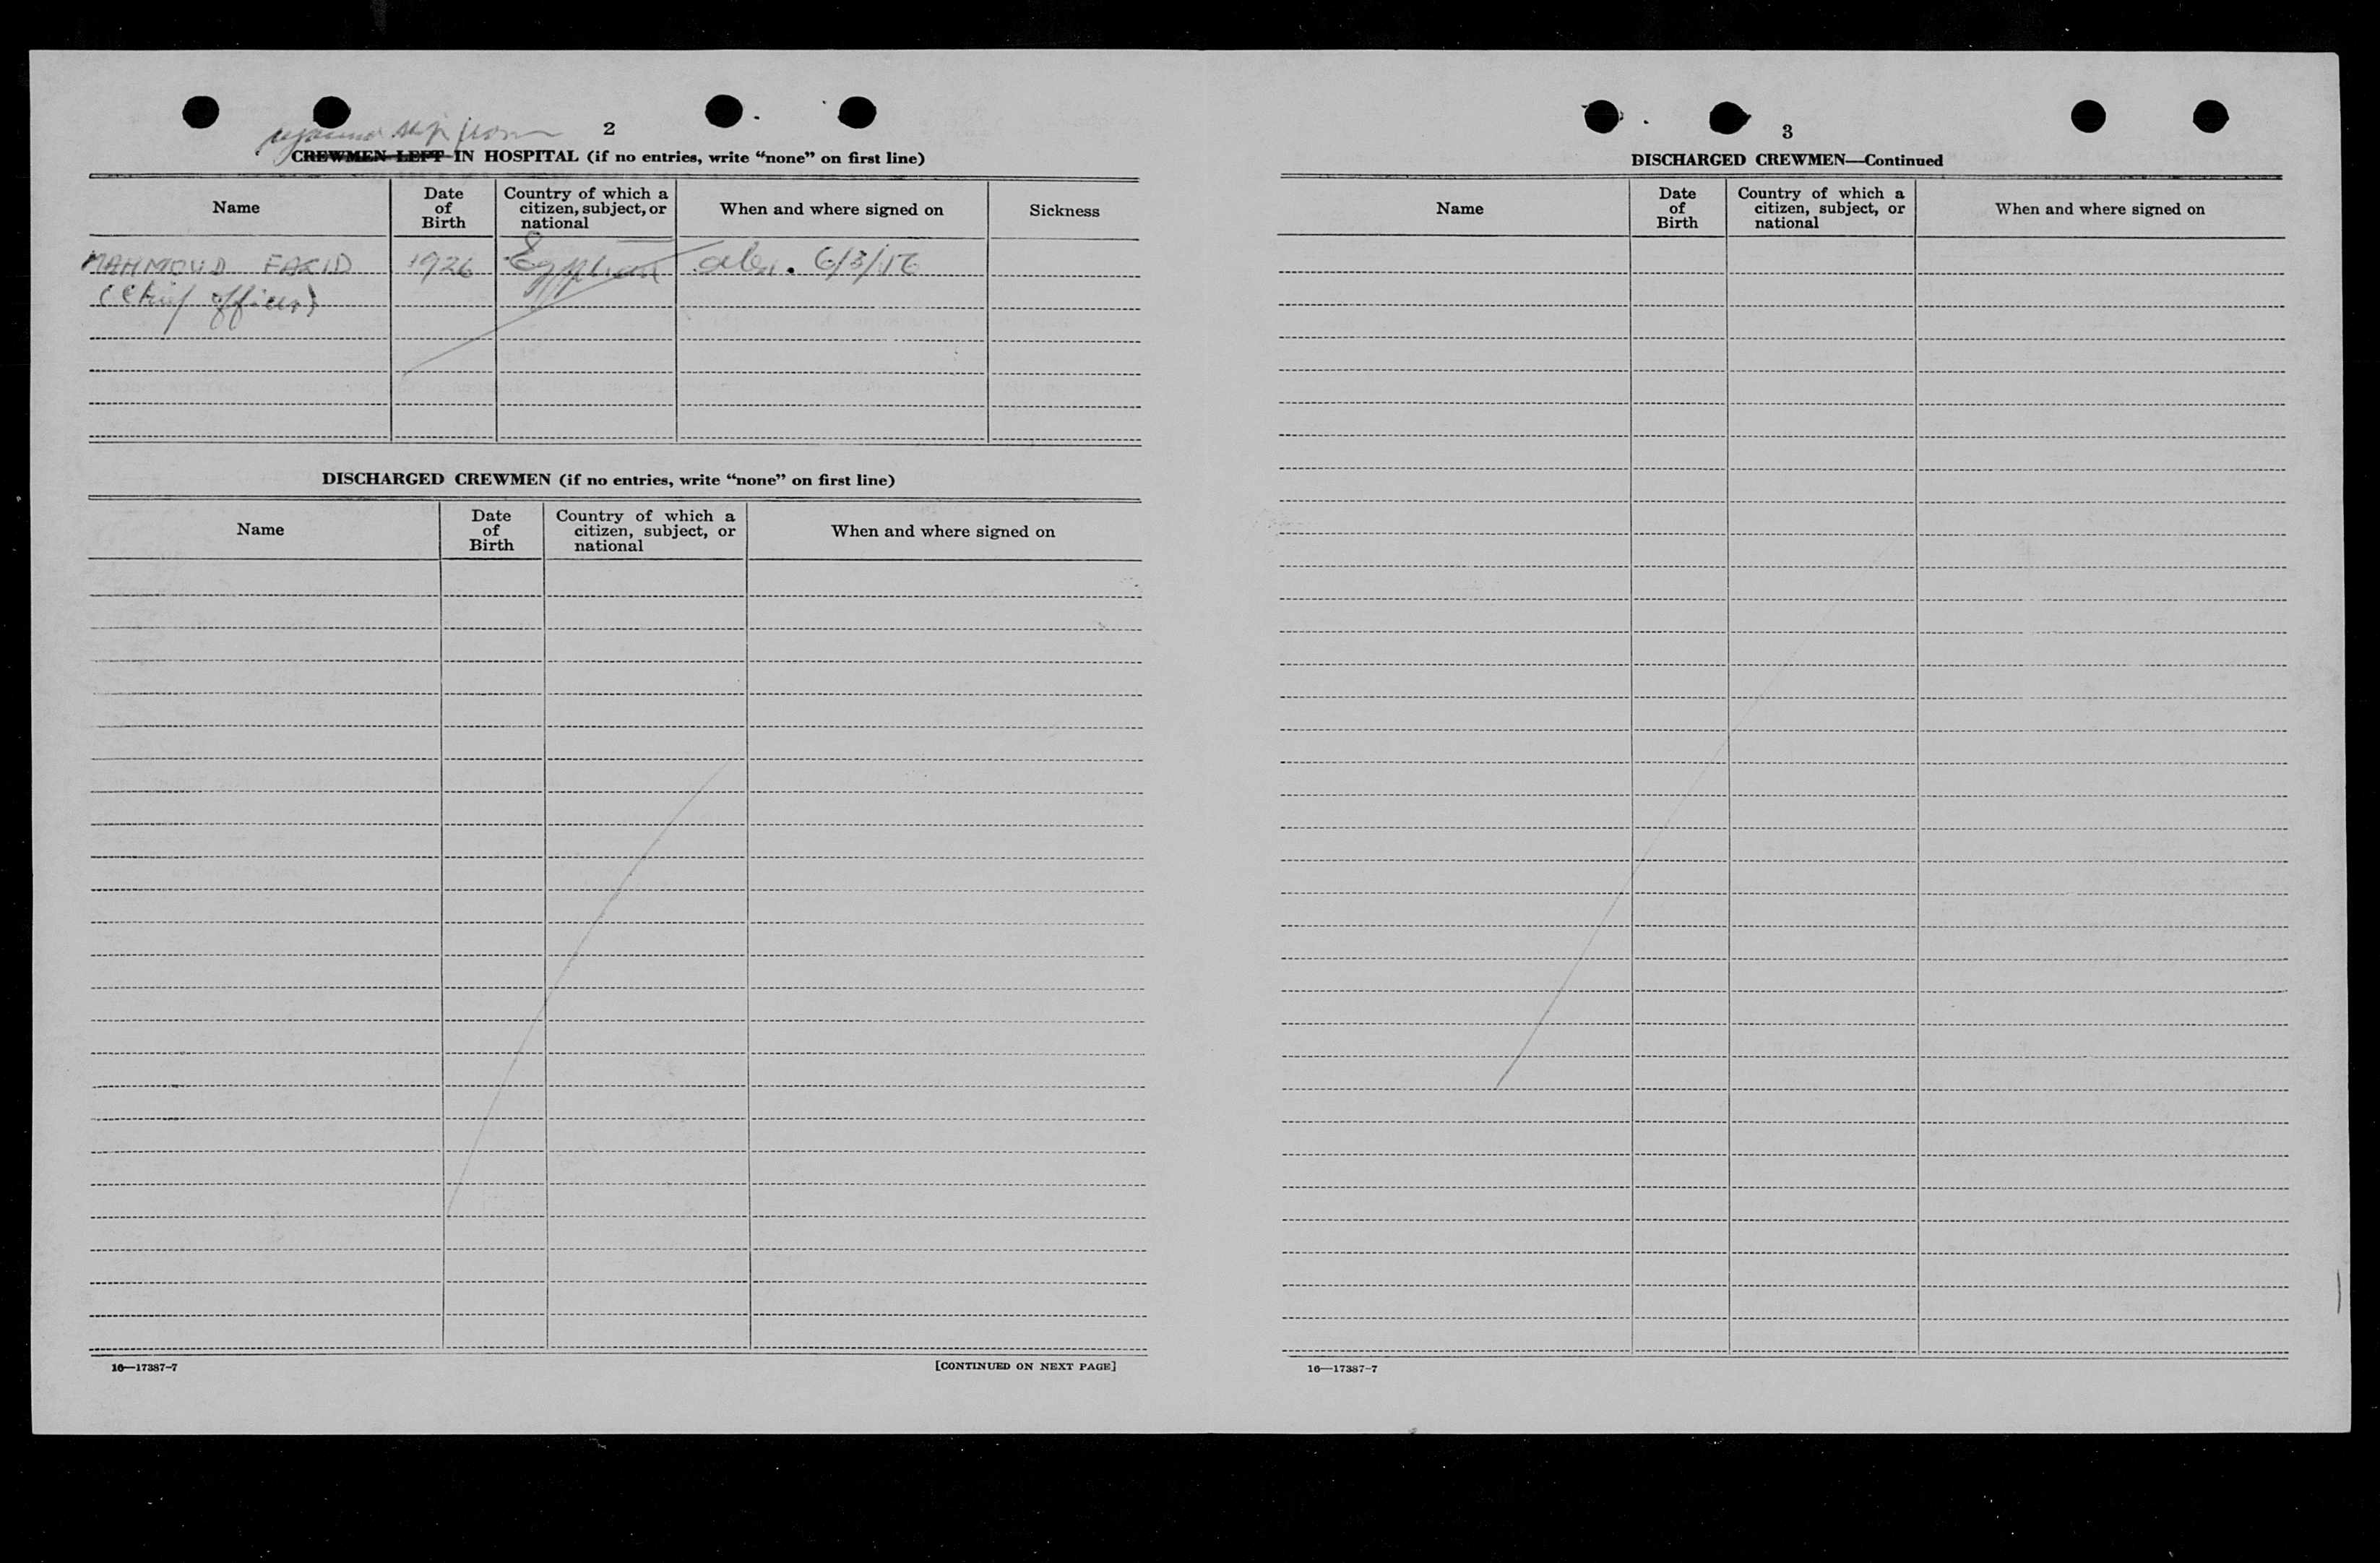 2
rejoined ship from
CREWMEN LEFT IN HOSPITAL (if no entries, write “none” on first line)
Name
Date of Birth
Country of which a citizen, subject, or national
When and where signed on
Sickness
MAHMOUD FARID 1926 Egyptian alex. 6/3/56
(Chief officer)
DISCHARGED CREWMEN (if no entries, write “none” on first line)
Name
Date of Birth
Country of which a citizen, subject, or national
When and where signed on
16—17387-7
[CONTINUED ON NEXT PAGE]
3
DISCHARGED CREWMEN—Continued
Name
Date of Birth
Country of which a citizen, subject, or national
When and where signed on
16—17387-7